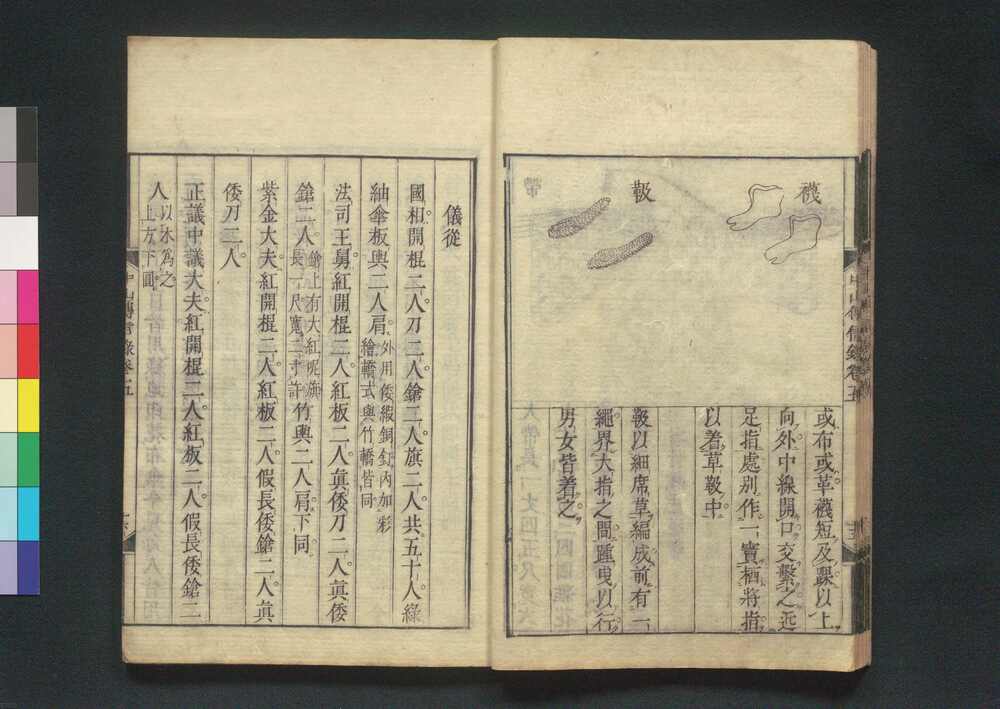 襪
或布或革襪短及踝以上
向外中線開口交繫之近
足指處別作一寳栖將指
以着草靸中
靸
靸以細席草編成前有一
繩界大指之間踵曳以行
男女皆着之
中山傳信錄卷五
儀從
國相開棍二人刀二人鎗二人旗二人共五十人綠
紬傘板輿二人肩外用倭緞銅釘內加彩
繪轎式與竹轎皆同
法司王舅紅開棍二人紅板二人眞倭刀二人眞倭
鎗二人鎗上有大紅呢旗
長一尺寬二寸許竹輿二人肩下同
紫金大夫紅開棍二人紅板二人假長倭鎗二人眞
倭刀二人
正議中議大夫紅開棍二人紅板二人假長倭鎗二
人以木爲之
上方下圓
中山傳信錄卷五